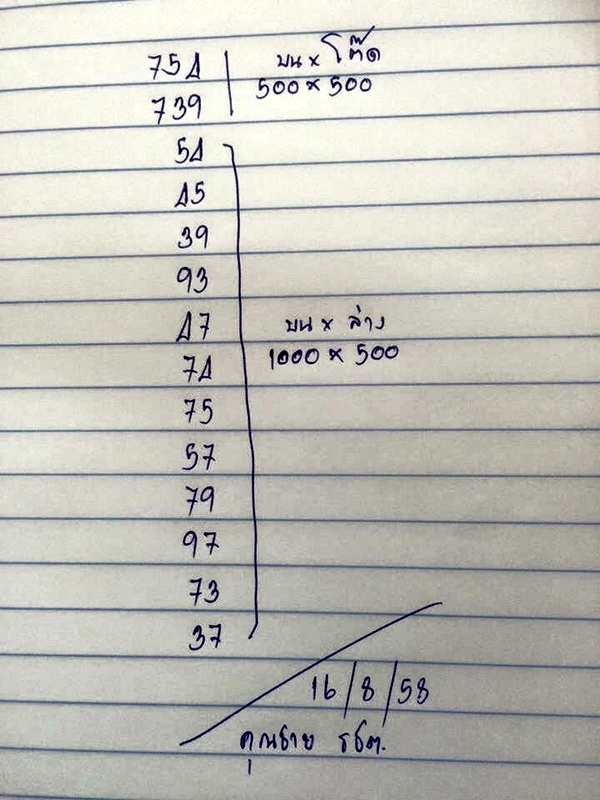 754
บน x โต๊ด
739
500 x 500
54
45
39
93
47
บน x ล่าง
74
1000 x 500
75
57
79
97
73
37
16/8/58
คุณชาย รชต.